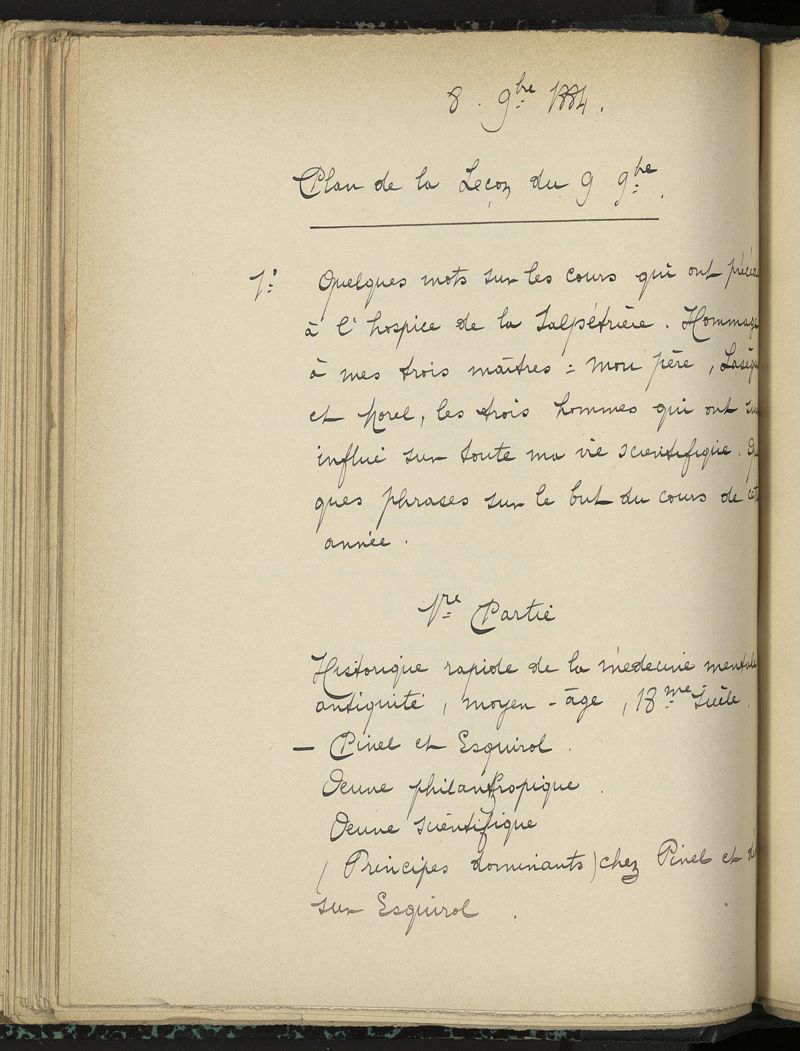 8. 9bre 1884.
Plan de la Leçon du 9 9bre.
1° Quelques mots sur les cours qui ont précéd
à l'hospice de la Salpétrière. Hommag
à mes trois maîtres = mon père, Lasègu
et Morel, les trois hommes qui ont
influé sur toute ma vie scientifique.
ques phrases sur le but du cours de cet
année.
1re Partie
Historique rapide de la médecine mentale
antiquité, moyen-âge, 18me siècle.
— Pinel et Esquirol.
Oeuvre philanthropique.
Oeuvre scientifique
(Principes dominants) chez Pinel et
sur Esquirol.